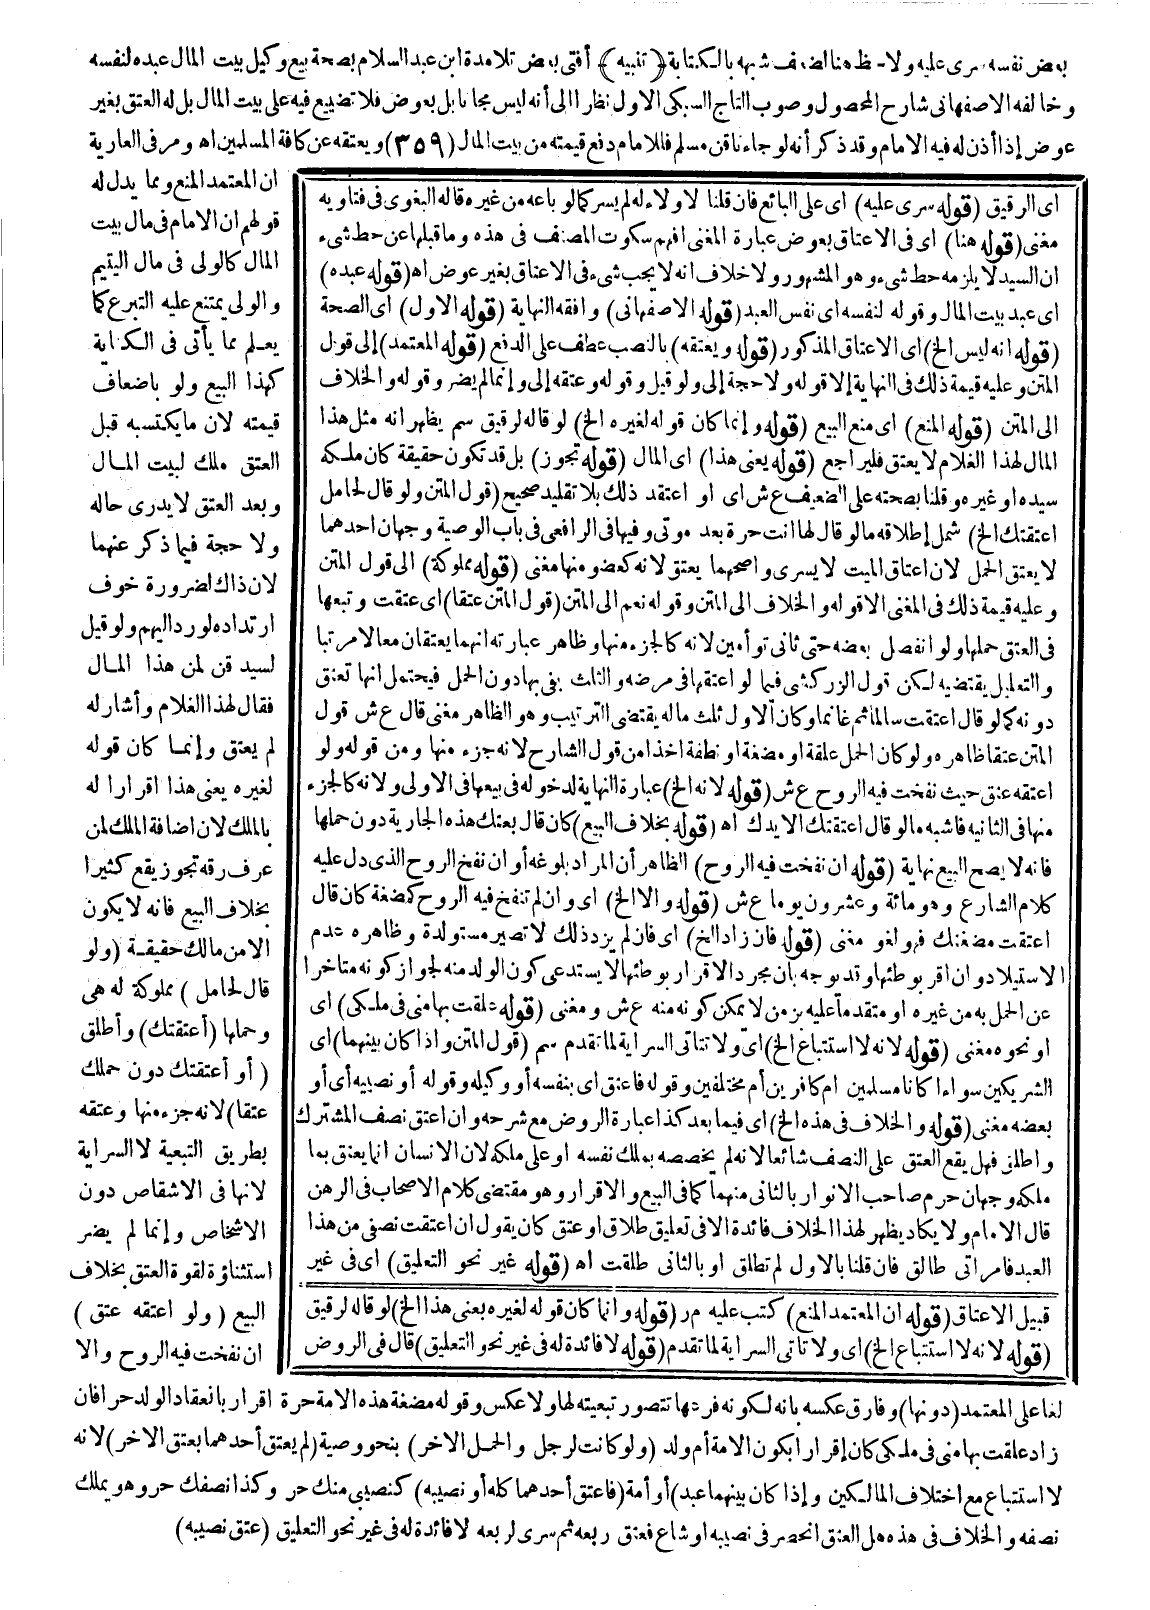 بعض نفسه سرى عليه ولا حظ هنا لضعف شبهه بالكتابة (تنبيه) أفتى بعض تلامذة ابن عبد السلام بصحة بيع وكيل بيت المال عبده لنفسه
وخالفه الاصفهانى شارح المحصول وصوب التاج السبكى الاول نظرا الى أنه ليس مجانا بل بعوض فلا تضييع فيه على بيت المال بل له العتق بغير
عوض إذا أذن له فيه الامام وقد ذكر أنه لو جاءنا قن مسلم فللامام دفع قيمته من بيت المال (٣٥٩) ويعتقه عن كافة المسلمين اه ومر فى العارية
ان المعتمد المنع ومما يدل له
قولهم ان الامام فى مال بيت
المال كالولى فى مال اليتيم
والولى يمتنع عليه التبرع كما
يعلم مما يأتى فى الكتابة
كهذا البيع ولو باضعاف
قيمته لان ما يكتسبه قبل
العتق ملك لبيت المال
وبعد العتق لا يدرى حاله
ولا حجة فيما ذكر عنهما
لان ذاك لضرورة خوف
ارتداده لو رد اليهم ولو قيل
لسيد قن لمن هذا المال
فقال لهذا الغلام وأشار له
لم يعتق وإنما كان قوله
لغيره يعنى هذا اقرارا له
بالملك لان اضافة الملك لمن
عرف رقه تجوز يقع كثيرا
بخلاف البيع فانه لا يكون
الا من مالك حقيقة (ولو
قال لحامل) مملوكة له هى
وحملها (أعتقتك) وأطلق
(أو أعتقتك دون حملك
عتقا) لانه جزء منها وعتقه
بطريق التبعية لا السراية
لانها فى الاشقاص دون
الاشخاص وإنما لم يضر
استثناؤه لقوة العتق بخلاف
البيع (ولو اعتقه عتق)
ان نفخت فيه الروح والا
اى الرقيق (قوله سرى عليه) اى على البائع فان قلنا لا ولاء له لم يسر كما لو باعه من غيره قاله البغوى فى فتاويه
مغنى (قوله هنا) اى فى الاعتاق بعوض عبارة المغنى افهم سكوت المصنف فى هذه وما قبلها عن حط شىء
ان السيد لا يلزمه حط شىء وهو المشهور ولا خلاف انه لا يجب شىء فى الاعتاق بغير عوض اه (قوله عبده)
اى عبد بيت المال وقوله لنفسه اى نفس العبد (قوله الاصفهانى) وافقه النهاية (قوله الاول) اى الصحة
(قوله انه ليس الخ) اى الاعتاق المذكور (قوله ويعتقه) بالنصب عطف على الدفع (قوله المعتمد) إلى قول
المتن وعليه قيمة ذلك فى النهاية إلا قوله ولا حجة إلى ولو قيل وقوله وعتقه إلى وإنما لم يضر وقوله والخلاف
الى المتن (قوله المنع) اى منع البيع (قوله وإنما كان قوله لغيره الخ) لو قاله لرقيق سم يظهر انه مثل هذا
المال لهذا الغلام لا يعتق فليراجع (قوله يعنى هذا) اى المال (قوله تجوز) بل قد تكون حقيقة كان ملكه
سيده او غيره وقلنا بصحته على الضعيف ع ش اى او اعتقد ذلك بلا تقليد صحيح (قول المتن ولو قال لحامل
اعتقتك الخ) شمل إطلاقه ما لو قال لها انت حرة بعد موتى وفيها فى الرافعى فى باب الوصية وجهان احدهما
لا يعتق الحمل لان اعتاق الميت لا يسرى واصحهما يعتق لانه كعضو منها مغنى (قوله مملوكة) الى قول المتن
وعليه قيمة ذلك فى المغنى الا قوله والخلاف الى المتن وقوله نعم الى المتن (قول المتن عتقا) اى عتقت وتبعها
فى العتق حملها ولو انفصل بعضه حتى ثانى توأمين لانه كالجزء منها وظاهر عبارته انهما يعتقان معا لا مرتبا
والتعليل يقتضيه لكن قول الزركشى فيما لو اعتقها فى مرضه والثلث يفى بها دون الحمل فيحتمل انها تعتق
دونه كما لو قال اعتقت سالما ثم غانما وكان الاول ثلث ماله يقتضى الترتيب وهو الظاهر مغنى قال ع ش قول
المتن عتقا ظاهره ولو كان الحمل علقة او مضغة او نطفة اخذا من قول الشارح لانه جزء منها ومن قوله ولو
اعتقه عتق حيث نفخت فيه الروح ع ش (قوله لانه الخ) عبارة النهاية لدخوله فى بيعها فى الاولى ولانه كالجزء
منها فى الثانيه فاشبه ما لو قال اعتقتك الا يدك اه (قوله بخلاف البيع) كان قال بعتك هذه الجارية دون حملها
فانه لا يصح البيع نهاية (قوله ان نفخت فيه الروح) الظاهر أن المراد بلوغه أوان نفخ الروح الذى دل عليه
كلام الشارع وهو مائة وعشرون يوما ع ش (قوله والا الخ) اى وان لم تنفخ فيه الروح كمضغة كان قال
اعتقت مضغتك فهو لغو مغنى (قوله فان زاد الخ) اى فان لم يزد ذلك لا تصير مستولدة وظاهره عدم
الاستيلاد وان اقر بوطئها وقد يوجه بان مجرد الاقرار بوطئها لا يستدعى كون الولد منه لجواز كونه متاخرا
عن الحمل به من غيره او متقدما عليه بزمن لا يمكن كونه منه ع ش ومغنى (قوله علقت بها منى فى ملكى) اى
او نحوه مغنى (قوله لانه لا استتباع الخ) اى ولا تتاتى السراية لما تقدم سم (قول المتن واذا كان بينهما) اى
الشريكين سواء ا كانا مسلمين ام كافرين أم مختلفين وقوله فاعتق اى بنفسه أو وكيله وقوله أو نصيبه أى أو
بعضه مغنى (قوله والخلاف فى هذه الخ) اى فيما بعد كذا عبارة الروض مع شرحه وان اعتق نصف المشترك
واطلق فهل يقع العتق على النصف شائعا لانه لم يخصصه بملك نفسه او على ملكه لان الانسان انما يعتق بما
ملكه وجهان جزم صاحب الانوار بالثانى منهما كما فى البيع والاقرار وهو مقتضى كلام الاصحاب فى الرهن
قال الامام ولا يكاد يظهر لهذا الخلاف فائدة الا فى تعليق طلاق او عتق كان يقول ان اعتقت نصفى من هذا
العبد فامراتى طالق فان قلنا بالاول لم تطلق او بالثانى طلقت اه (قوله غير نحو التعليق) اى فى غير
قبيل الاعتاق (قوله ان المعتمد المنع) كتب عليه م ر (قوله وانما كان قوله لغيره يعنى هذا الخ) لو قاله لرقيق
(قوله لانه لا استتباع الخ) اى ولا تاتى السراية لما تقدم (قوله لا فائدة له فى غير نحو التعليق) قال فى الروض
لغا على المعتمد (دونها) وفارق عكسه بانه لكونه فرعها تتصور تبعيته لها ولا عكس وقوله مضغة هذه الامة حرة اقرار بانعقاد الولد حرا فان
زاد علقت بها منى فى ملكى كان إقرارا بكون الامة أم ولد (ولو كانت لرجل والحمل الآخر) بنحو وصية (لم يعتق أحدهما بعتق الآخر) لانه
لا استتباع مع اختلاف المالكين وإذا كان بينهما عبد) أو أمة (فاعتق أحدهما كله أو نصيبه) كنصيبى منك حر وكذا نصفك حر وهو يملك
نصفه والخلاف فى هذه هل العتق انحصر فى نصيبه او شاع فعتق ربعه ثم سرى لربعه لا فائدة له فى غير نحو التعليق (عتق نصيبه)